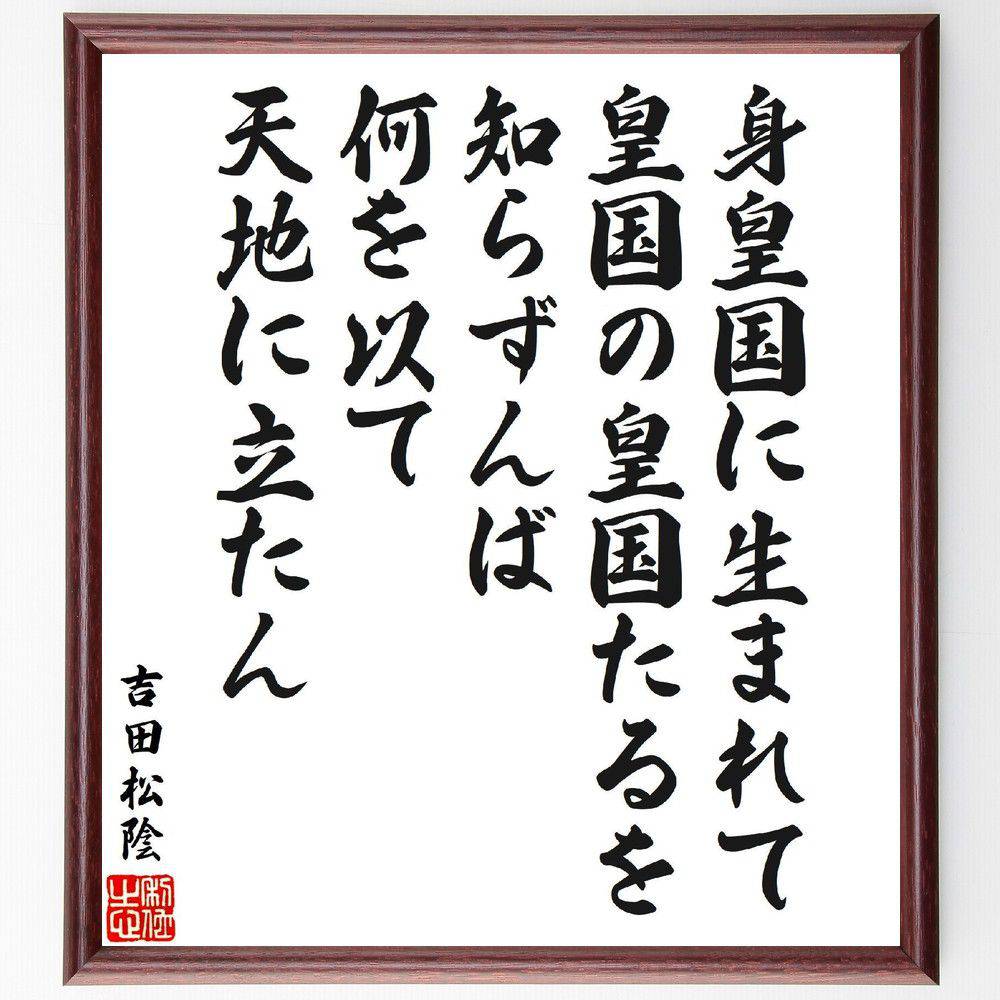 身皇国に生まれて
皇国の皇国たるを
知らずんば
何を以て
天地に立たん
吉田松陰